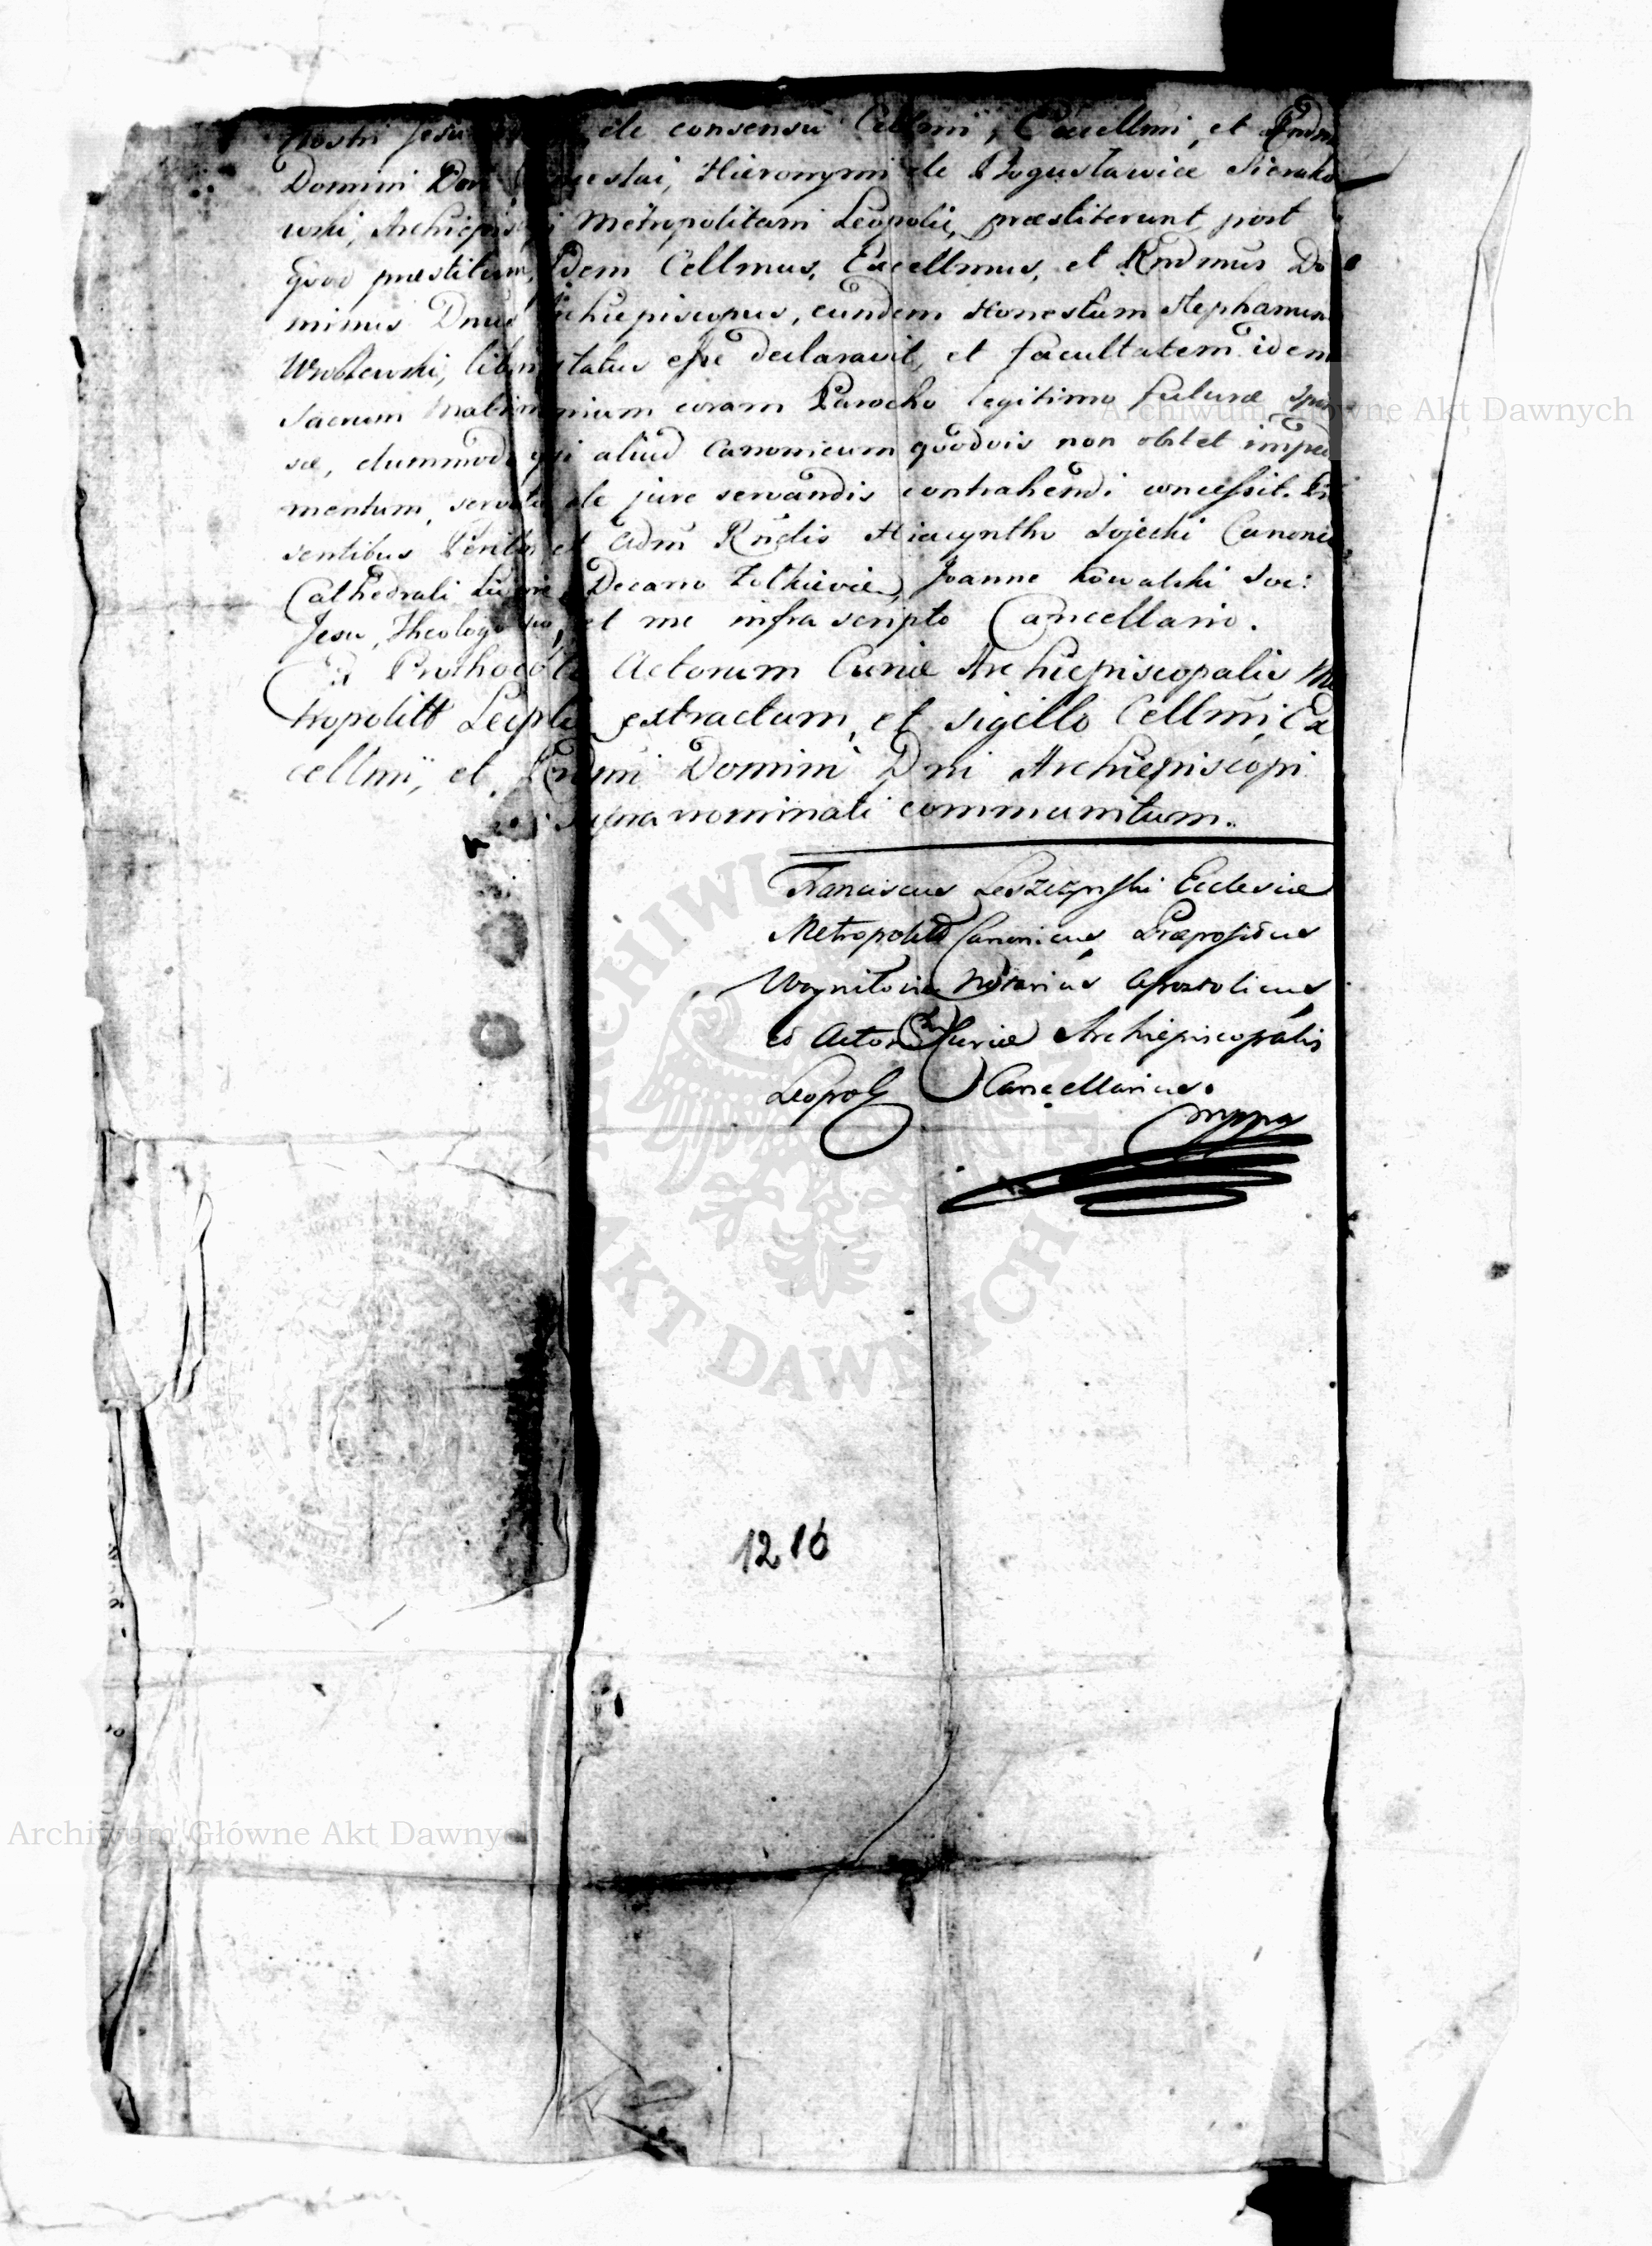 Nostri Jesu de consensu Cellmi, Excellmi, et Rndmi
Domini Dni Hieronymi de Bogusławice Sierako
wski, Archiepis i Metropolitani Leopolis, præstiterunt, post
quod præstitum, Idem Cellmus, Excellmus, et Rndmus Do
minus Dnus Archiepiscopus, eundem Honestum Stephanum
Wroblewski, liberi status esse declaravit, et facultatem idem
Sacrum Matrimonium coram Parocho legitimo futuræ Spon
sæ, dummodo qui aliud Canonicum quodvis non obstet impedi
mentum, servatis de jure servandis contrahendi concessit. Præ
sentibus Perillri et Adm Rndis Hyacintho Canonico
Cathedrali Decano Zolkievien, Joanne Kowalski Soc:
Jesu, Theologo suo, et me infra scripto Cancellario.
Ex Prothocollo Actorum Curiæ Archiepiscopalis Me
tropolitt Leoplis extractum, et sigillo Cellmi, Ex
cellmi, et Rndmi Domini Dni Archiepiscopi
supra nominati communitum.
Franciscus Leszczynski Ecclesiæ
Metropolitt Canonicus Præpositus
Notarius Apostolicus
et Actor Curiæ Archiepiscopalis
Leopol Cancellarius.
mppa
1216
Archiwum Główne Akt Dawnych
ARCHIWUM
AKT DAWNYCH
Archiwum Główne Akt Dawnych